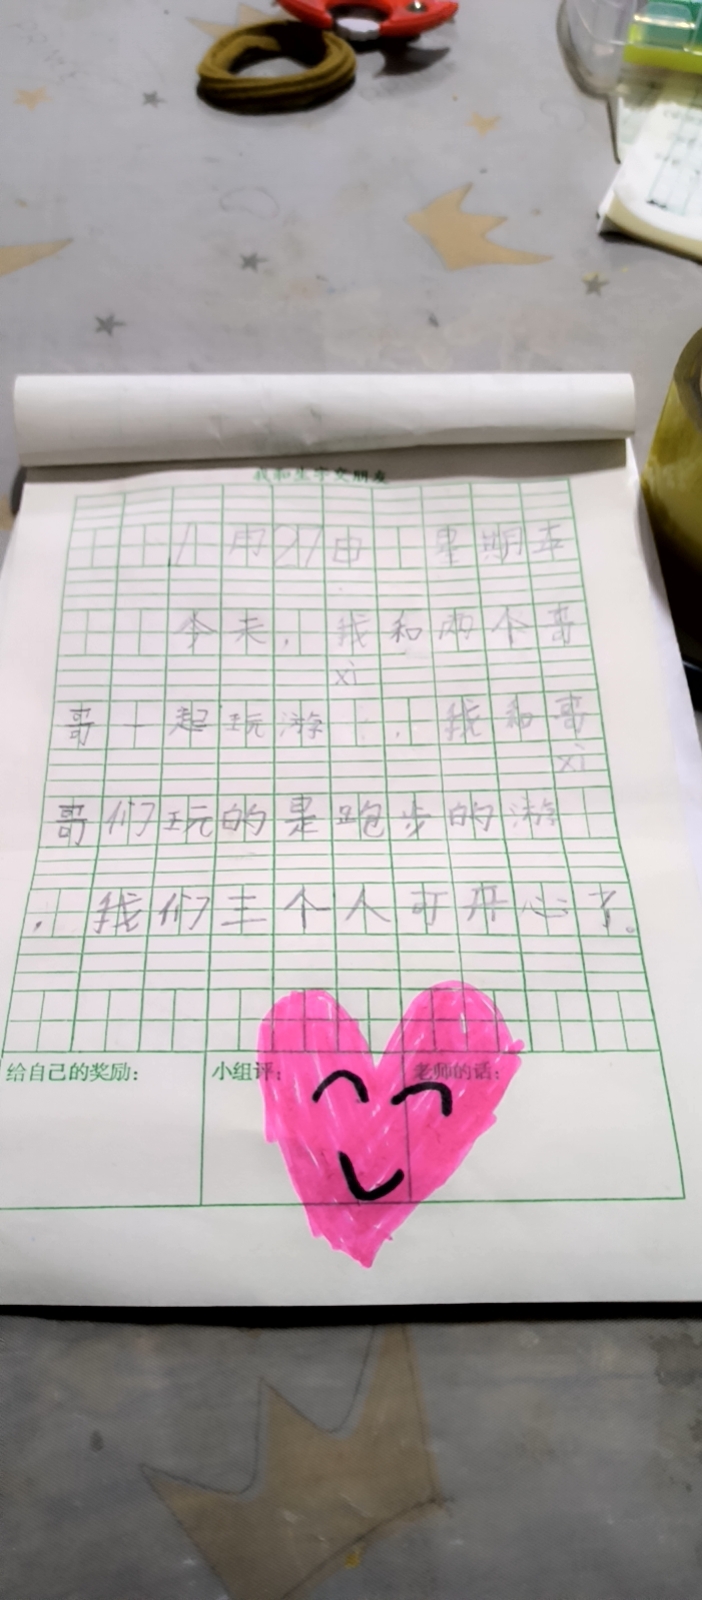 我和生字交朋友
11月21日 星期五
今天，我和两个哥
xì
哥一起玩游，我和哥
xì
哥们玩的是跑步的游
，我们三个人可开心了。
给自己的奖励： 小组评： 老师的话：